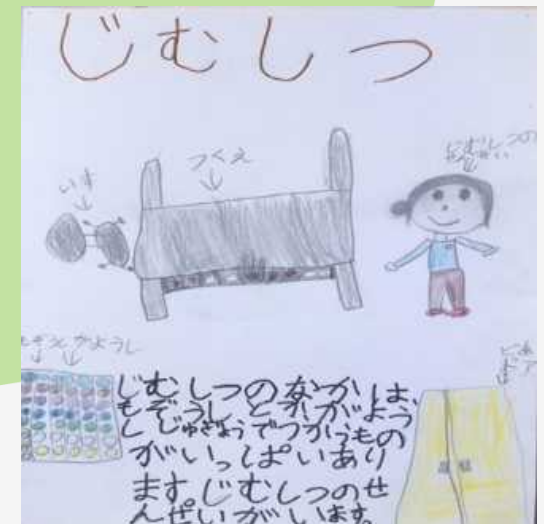 じむしつ
つくえ
いす
じむしつの
がようし
じむしつのなかは、
もぞうしとかがよう
しじゅぎょうでつかうもの
がいっぱいあり
ます。じむしつのせ
んせいがいます。